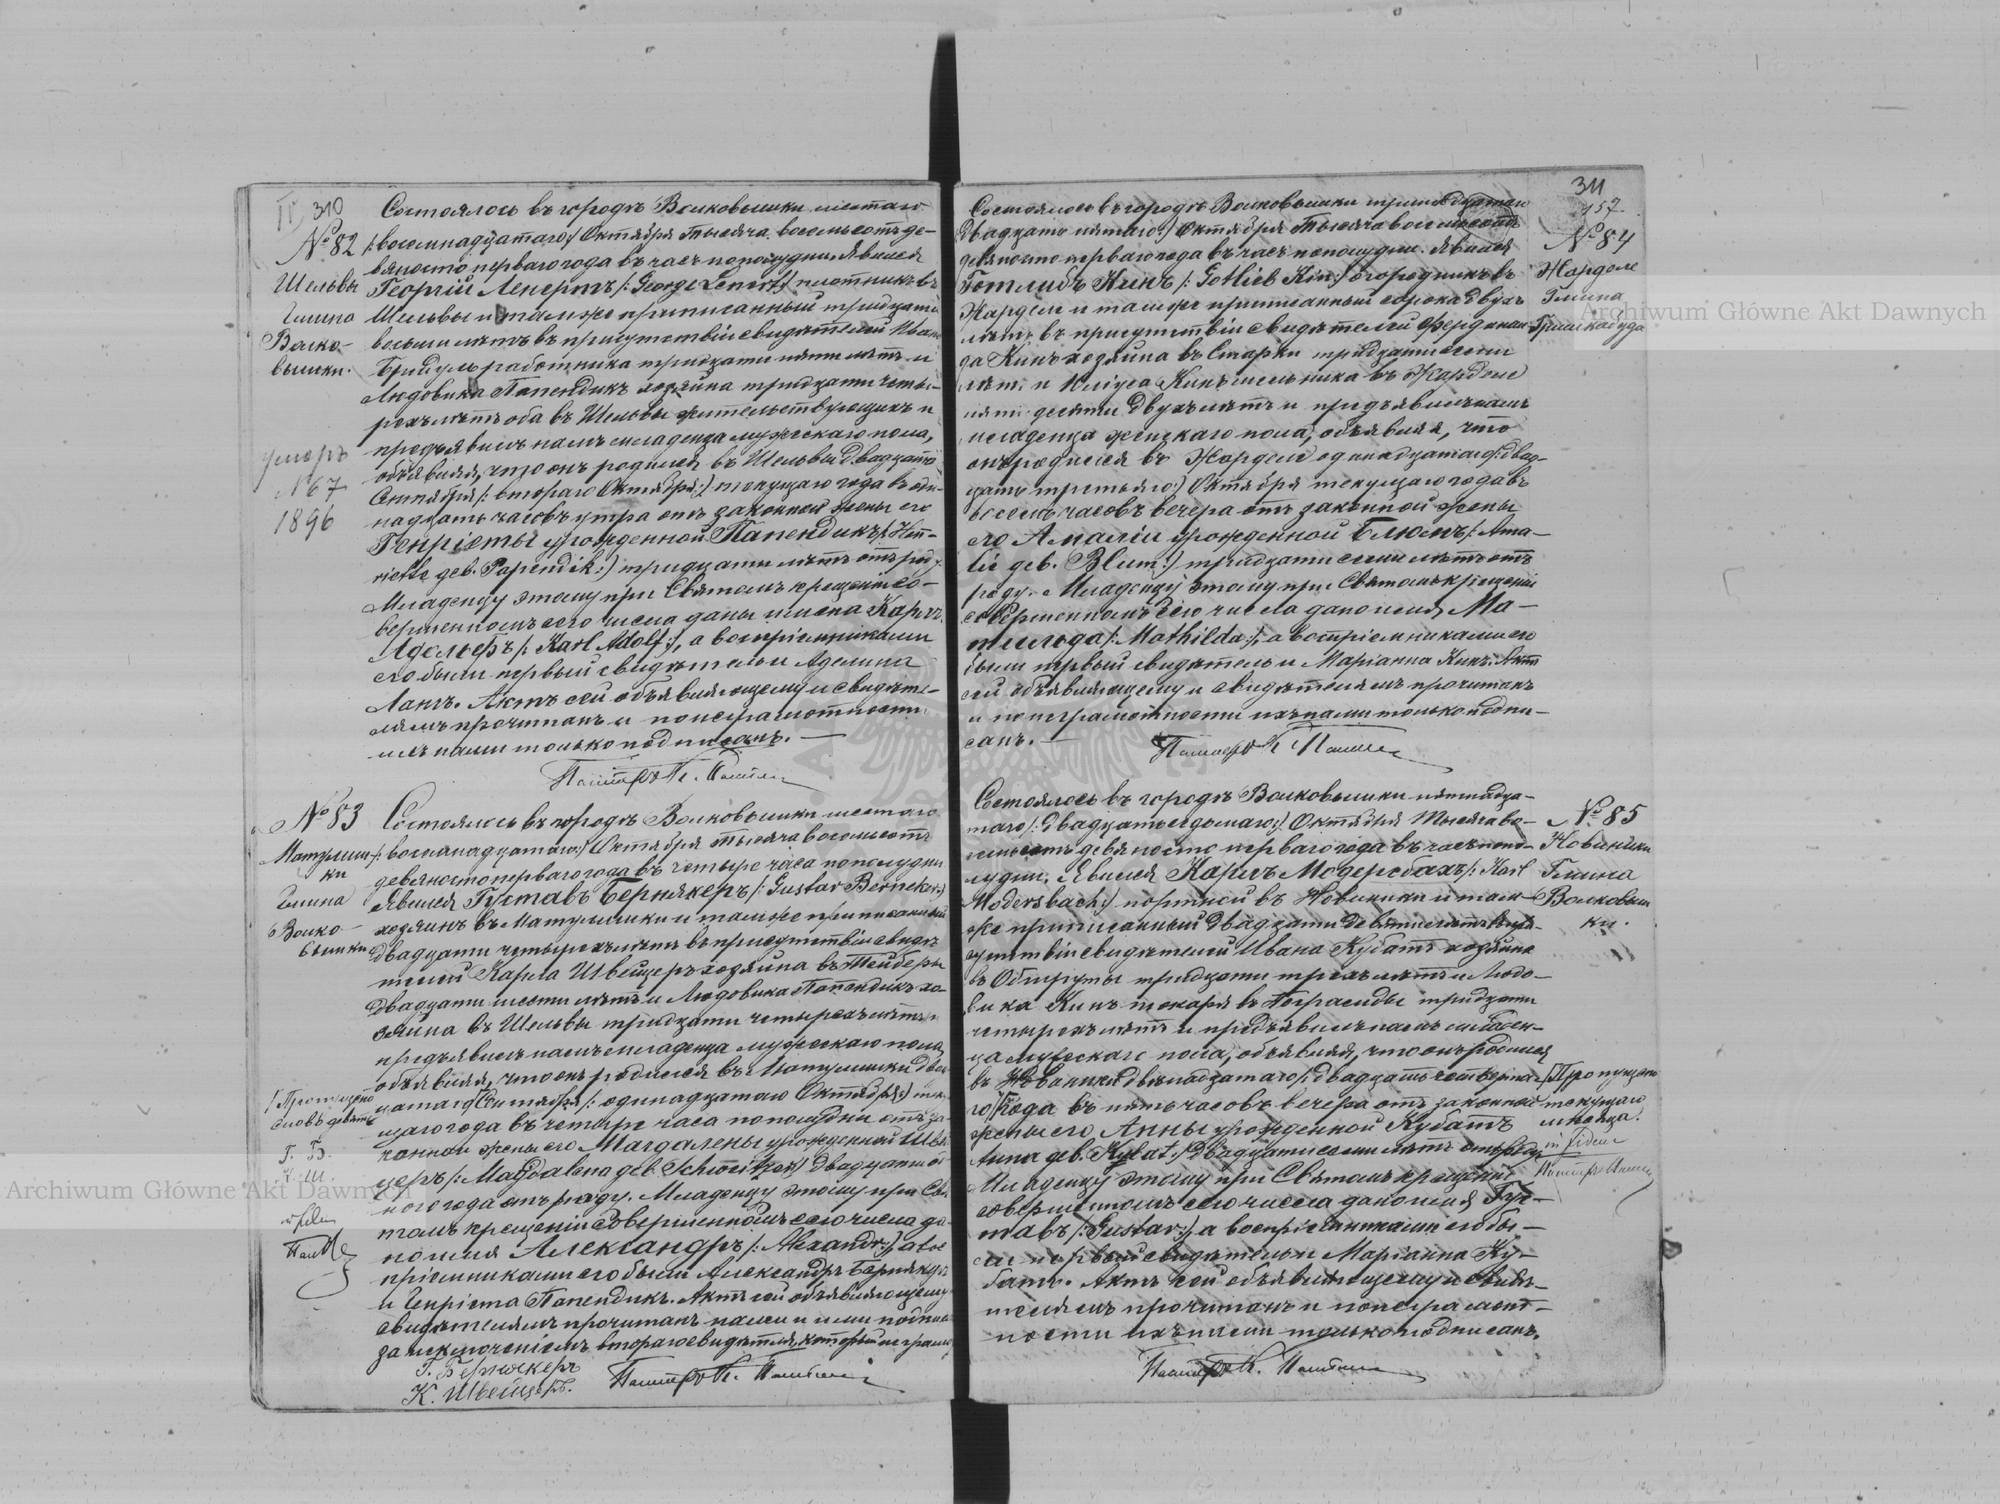 310
№ 82
Шельвы
Гмина
Волко-
вышки.
умеръ
№ 67
1896
Состоялось въ городѣ Волковышки шестаго
/:восемнадцатаго:/ Октября тысяча восемьсотъ де-
вяносто перваго года въ часъ пополудни. Явился
Георгій Ленертъ /: George Lenert:/ плотникъ въ
Шельвы и тамже приписанный тридцати
восьми лѣтъ въ присутствіи свидѣтелей
работника тридцати пяти лѣтъ и
Людовика Папендикъ хозяина тридцати четы-
рехъ лѣтъ оба въ Шельвы жительствующихъ и
предъявилъ намъ младенца мужескаго пола,
объявляя, что онъ родился въ Шельвы двадцатаго
Сентября /: втораго Октября:/ текущаго года въ оди-
надцать часовъ утра отъ законной жены его
Генріеты урожденной Папендикъ /: Hen-
riette geb. Papendik:/ тридцати лѣтъ отъ роду.
Младенцу этому при Святомъ крещеніи со-
вершенномъ сего числа даны имена Карлъ
Адольфъ /: Karl Adolf:/, а воспріемниками
его были первый свидѣтель и Аделина
Лангъ. Актъ сей объявляющему и свидѣте-
лямъ прочитанъ и по неграмотности
ихъ нами только подписанъ. —
Пасторъ
№ 83
Матулиш-
ки
Гмина
Волко-
вышки
/Пропущено
словъ девять
Г. Б.
К. Ш.
Состоялось въ городѣ Волковышки шестаго
/: восемнадцатаго:/ Октября тысяча восемьсотъ
девяносто перваго года въ четыре часа пополудни
Явился Густавъ Бернякеръ /: Gustav Berneker:/
хозяинъ въ Матулишки и тамже приписанный
двадцати четырехъ лѣтъ въ присутствіи свидѣ-
телей Карла Швейцеръ хозяина въ Тейберы
двадцати шести лѣтъ и Людовика Папендикъ хо-
зяина въ Шельвы тридцати четырехъ лѣтъ и
предъявилъ намъ младенца мужескаго пола,
объявляя, что онъ родился въ Матулишки двад-
цатаго Сентября /: одинадцатаго Октября:/ теку-
щаго года въ четыре часа пополудни отъ за-
конной жены его Магдалены урожденной Швей-
церъ /: Magdalena geb. Schweitzer:/ двадцати од-
ного года отъ роду. Младенцу этому при Свя-
томъ крещеніи совершенномъ сего числа да-
но имя Александръ /: Alexandr:/, а вос-
пріемниками его были Александръ Бернякеръ
и Генріета Папендикъ. Актъ сей объявляющему
свидѣтелямъ прочитанъ нами и ими подписанъ
за исключеніемъ втораго свидѣтеля, который неграмот.
Г. Бернякеръ
К. Швейцеръ.
Пасторъ
311
157
№ 84
Жарделе
Гмина
Гришкабуда
Состоялось въ городѣ Волковышки тринадцатаго
/двадцать пятаго:/ Октября тысяча восемьсотъ
девяносто перваго года въ часъ пополудни. Явился
Готлибъ Кинъ /: Gotlieb Kin:/ огородникъ въ
Жарделе и тамже приписанный сорока двухъ
лѣтъ, въ присутствіи свидѣтелей Фердинан-
да Кинъ хозяина въ Старки тридцати семи
лѣтъ и Юліуса Кинъ мельника въ Жарделе
пятидесяти двухъ лѣтъ и предъявилъ намъ
младенца женскаго пола, объявляя, что
онъ родился въ Жарделе одинадцатаго /: двад-
цать третьяго:/ Октября текущаго года въ
восемь часовъ вечера отъ законной жены
его Амаліи урожденной Блюмъ /: Ama-
lie geb. Blum:/ тридцати семи лѣтъ отъ
роду. Младенцу этому при Святомъ крещеніи
совершенномъ сего числа дано имя Ма-
тильда /: Mathilda:/, а воспріемниками его
были первый свидѣтель и Маріанна Кинъ. Актъ
сей объявляющему и свидѣтелямъ прочитанъ
и по неграмотности ихъ нами только подпи-
санъ. —
Пасторъ
№ 85
Новиники
Гмина
Волковыш
ки.
/Пропущено
текущаго
мѣсяца.
in fidem
Пасторъ
Состоялось въ городѣ Волковышки пятнадца-
таго /: двадцать седьмаго:/ Октября тысяча во-
семьсотъ девяносто перваго года въ часъ попо-
лудни. Явился Карлъ Модерсбахъ /: Karl
Modersbach:/ портной въ Новиники и там-
же приписанный двадцати девяти лѣтъ въ при-
сутствіи свидѣтелей Ивана Кубатъ хозяина
въ Обшруты тридцати трехъ лѣтъ и Людо-
вика Кинъ токаря въ Пограмды тридцати
четырехъ лѣтъ и предъявилъ намъ младен-
ца мужескаго пола, объявляя, что онъ родился
въ Новиники двѣнадцатаго /: двадцать четверта-
го:/ года въ пять часовъ вечера отъ законной
жены его Анны урожденной Кубатъ
Anna geb. Kubat:/ двадцати семи лѣтъ отъ роду
Младенцу этому при Святомъ крещеніи
совершенномъ сего числа дано имя Гус-
тавъ /: Gustav:/, а воспріемниками его бы-
ли первый свидѣтель и Маріанна Ку-
батъ. Актъ сей объявляющему и свидѣ-
телямъ прочитанъ и по неграмот-
ности ихъ нами только подписанъ.
Пасторъ
Archiwum Główne Akt Dawnych
Archiwum Główne Akt Dawnych